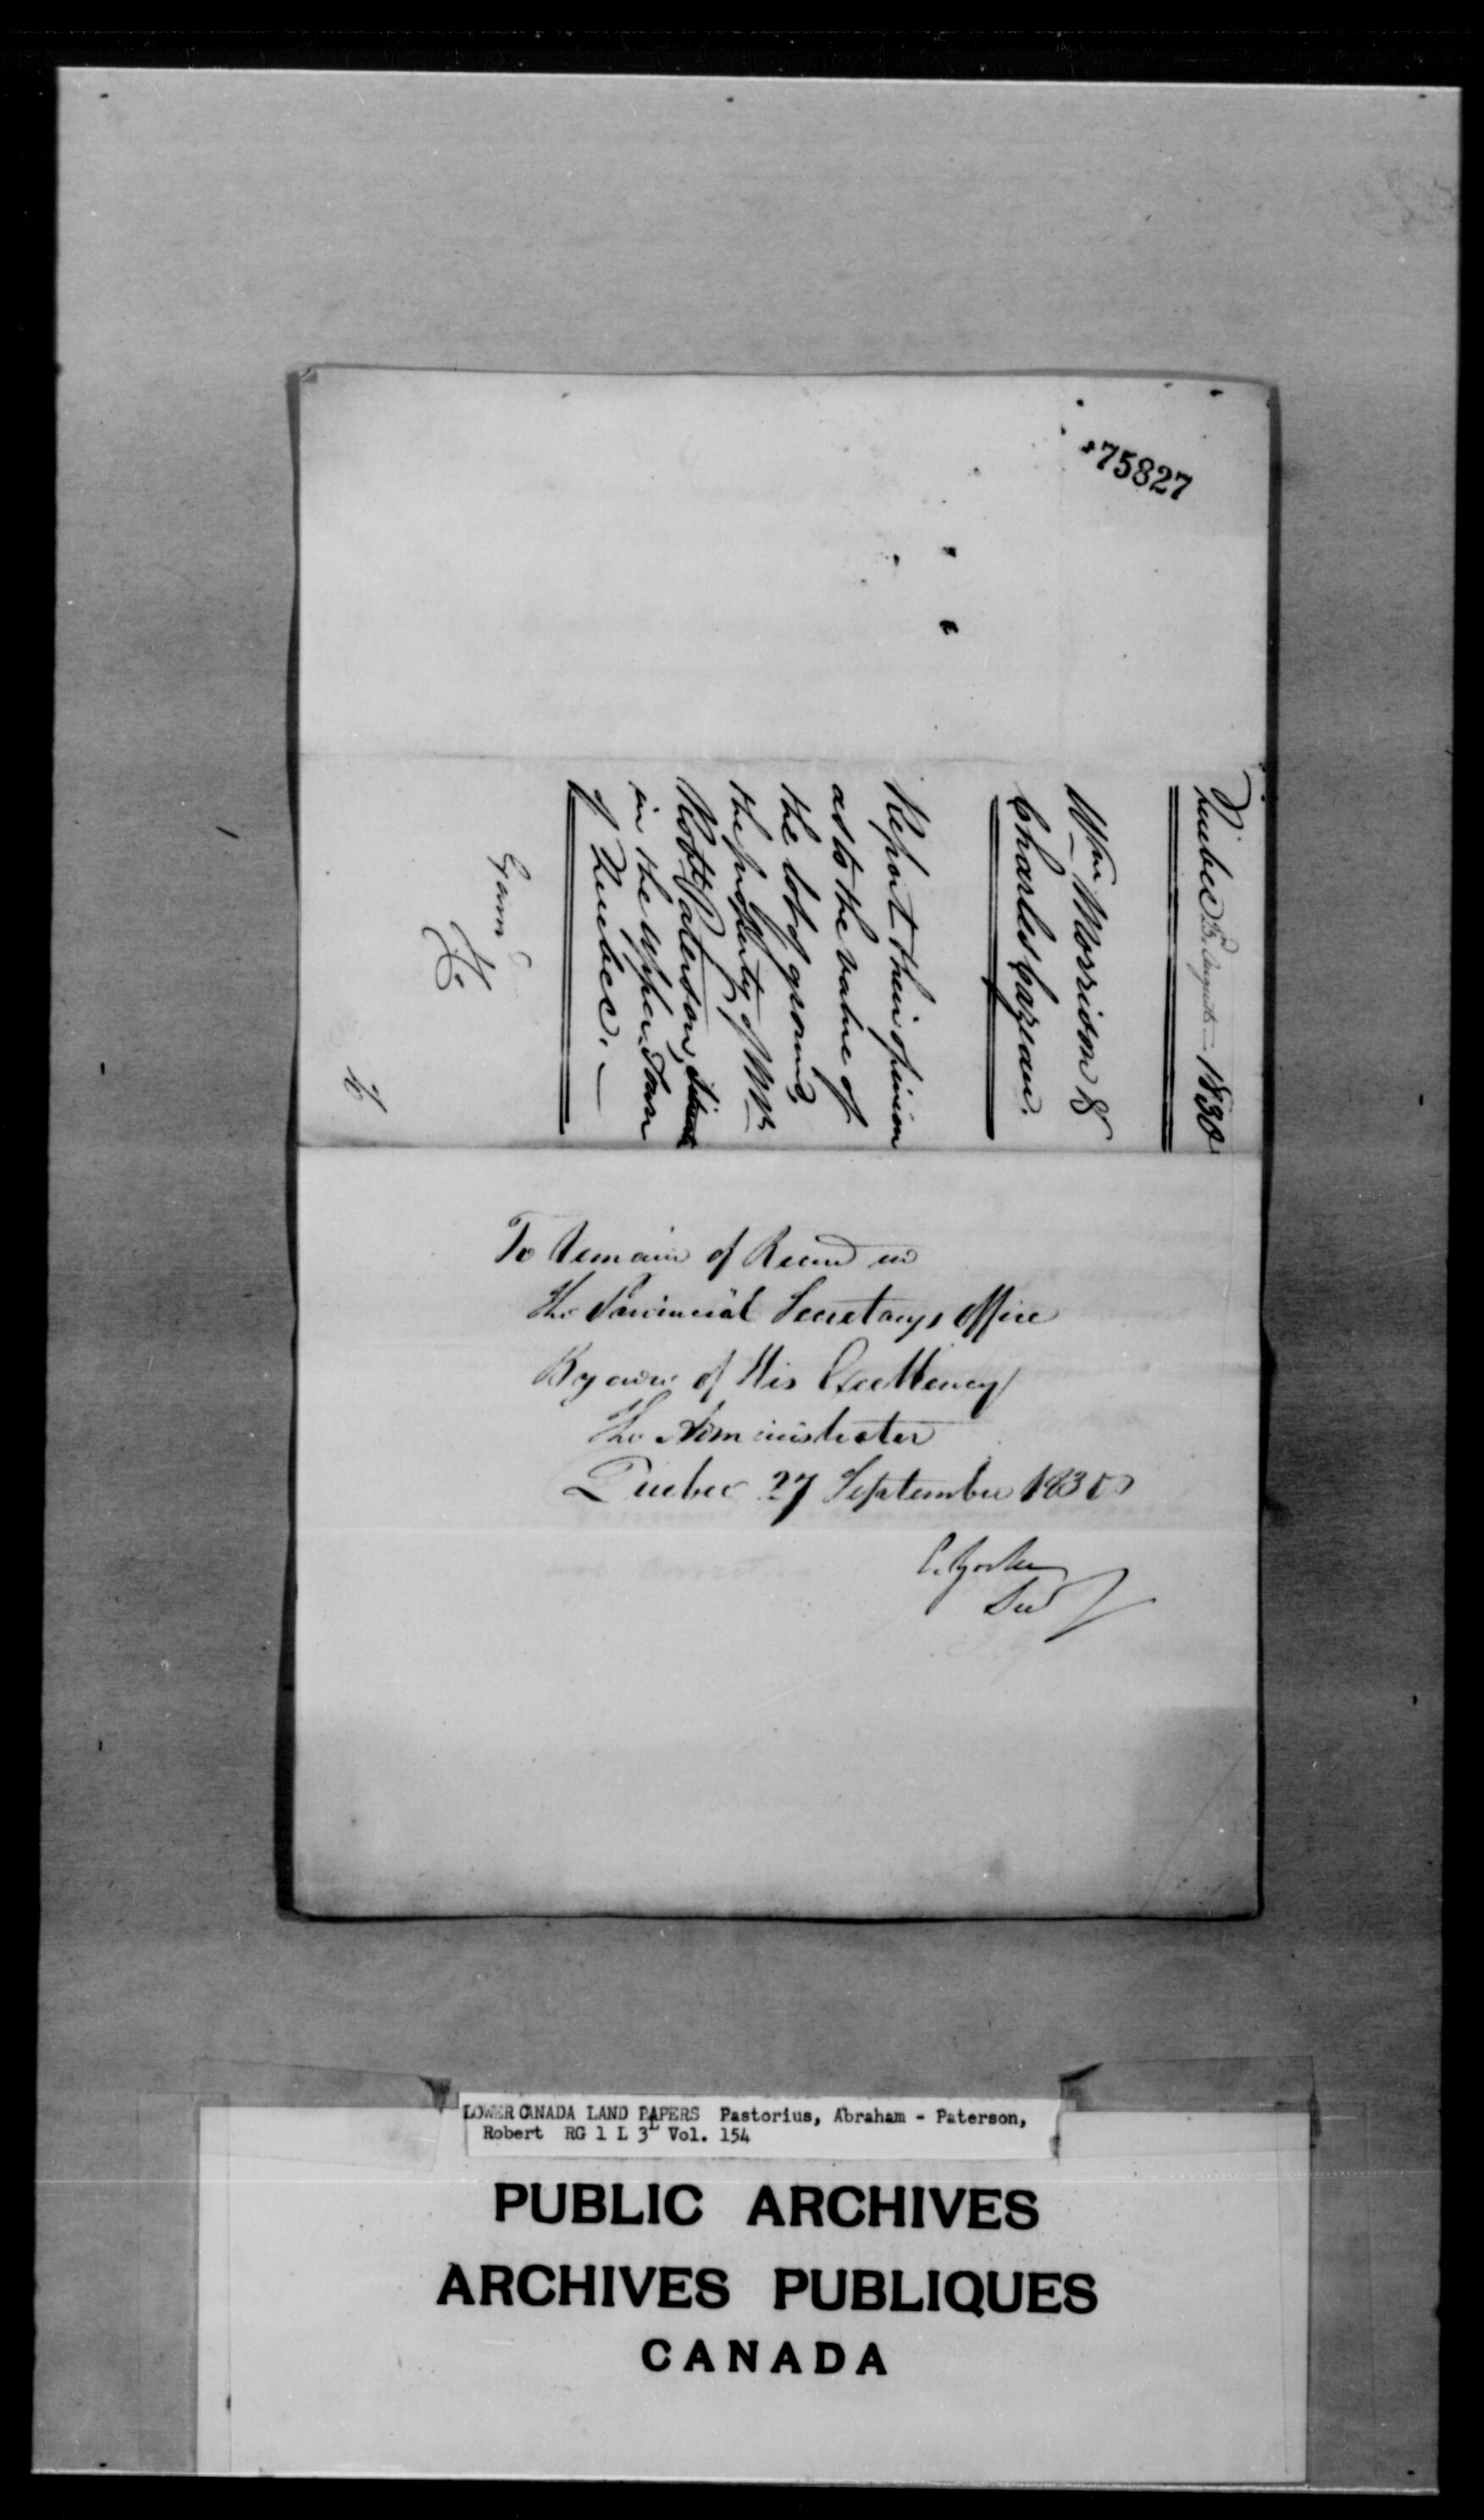 75827
Quebec August 1830
Wm Morrison &
Charles Cazeau.
Report their opinion
as to the value of
the lot of ground,
the property of Mr
Robt Paterson, situate
in the Upper Town
of Quebec. —
To Remain of Record in
the Provincial Secretarys Office
By order of His Excellency
The Administrator
Quebec 27 September 1830
C. Yorke
Secy
LOWER CANADA LAND PAPERS Pastorius, Abraham - Paterson,
Robert RG 1 L 3L Vol. 154
PUBLIC ARCHIVES
ARCHIVES PUBLIQUES
CANADA